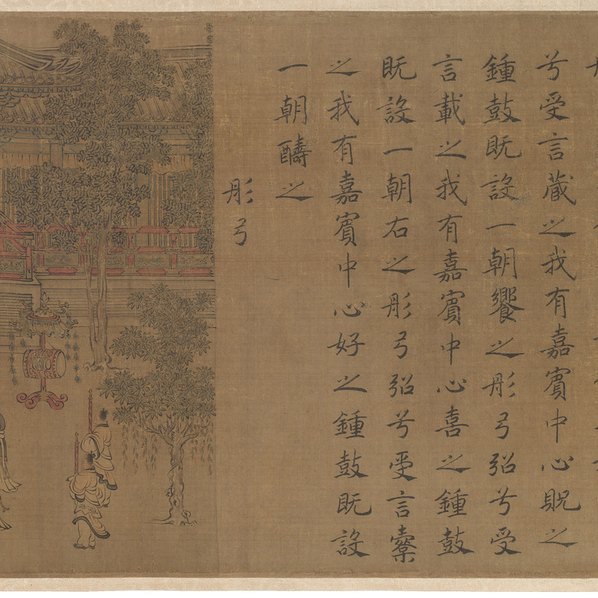 兮受言蔵之我有嘉賓中心貺之
鍾鼓既設一朝饗之彤弓弨兮受
言載之我有嘉賓中心喜之鍾鼓
既設一朝右之彤弓弨兮受言櫜
之我有嘉賓中心好之鍾鼓既設
一朝醻之
彤弓